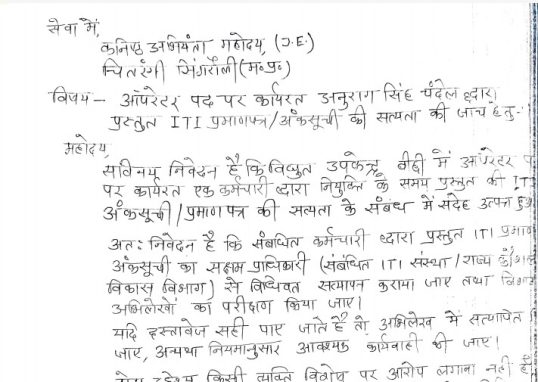 सेवा में,
कनिष्ठ अभियंता महोदय, (J.E.)
चितरंगी सिंगरौली (म०प्र०)
विषय - ऑपरेटर पद पर कार्यरत अनुराग सिंह चंदेल द्वारा
प्रस्तुत ITI प्रमाणपत्र/अंकसूची की सत्यता की जांच हेतु -
महोदय,
सविनय निवेदन है, कि विद्युत उपकेन्द्र में ऑपरेटर
पर कार्यरत एक कर्मचारी द्वारा नियुक्ति के समय प्रस्तुत की
अंकसूची/प्रमाण पत्र की सत्यता के संबंध में संदेह उत्पन्न
अतः निवेदन है कि संबंधित कर्मचारी द्वारा प्रस्तुत ITI
अंकसूची का सक्षम प्राधिकारी (संबंधित ITI संस्था/राज्य
विकास विभाग) से विधिवत सत्यापन कराया जाए तथा
अभिलेखों का परीक्षण किया जाए।
यदि दस्तावेज सही पाए जाते है तो अभिलेख में सत्यापित
जाए, अन्यथा नियमानुसार आवश्यक कार्यवाही की जाए।
किसी व्यक्ति विशेष पर आरोप लगाना नहीं